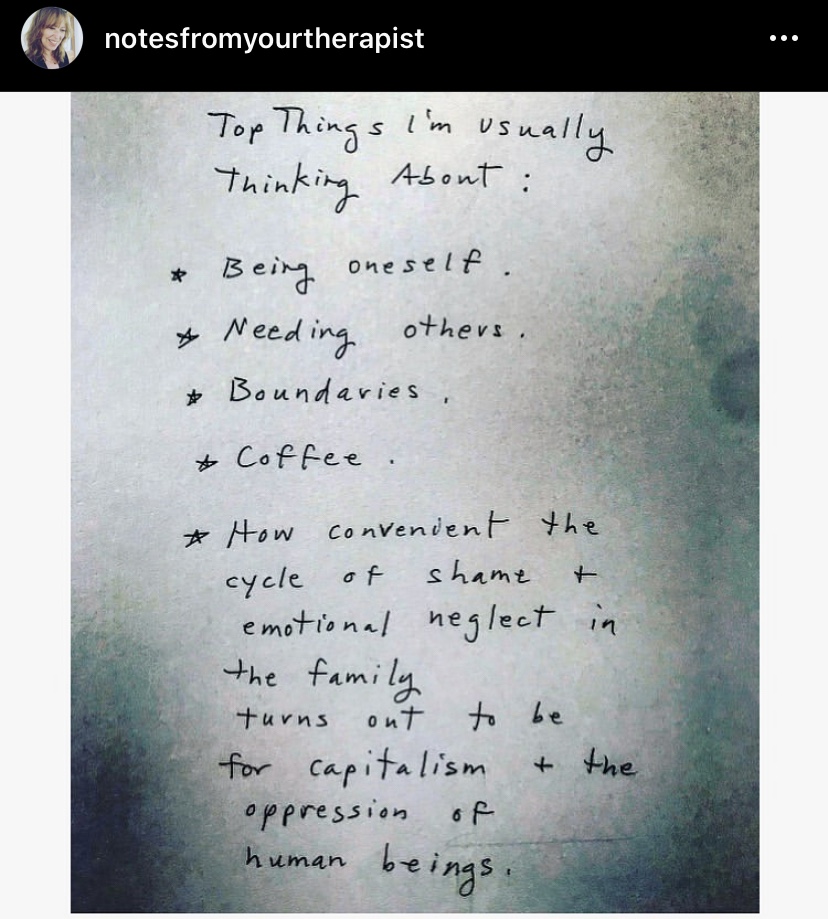 notesfromyourtherapist
Top Things I'm usually
Thinking About :
* Being oneself.
* Needing others.
* Boundaries.
* Coffee.
* How convenient the
cycle of shame +
emotional neglect in
the family
turns out to be
for capitalism + the
oppression of
human beings.